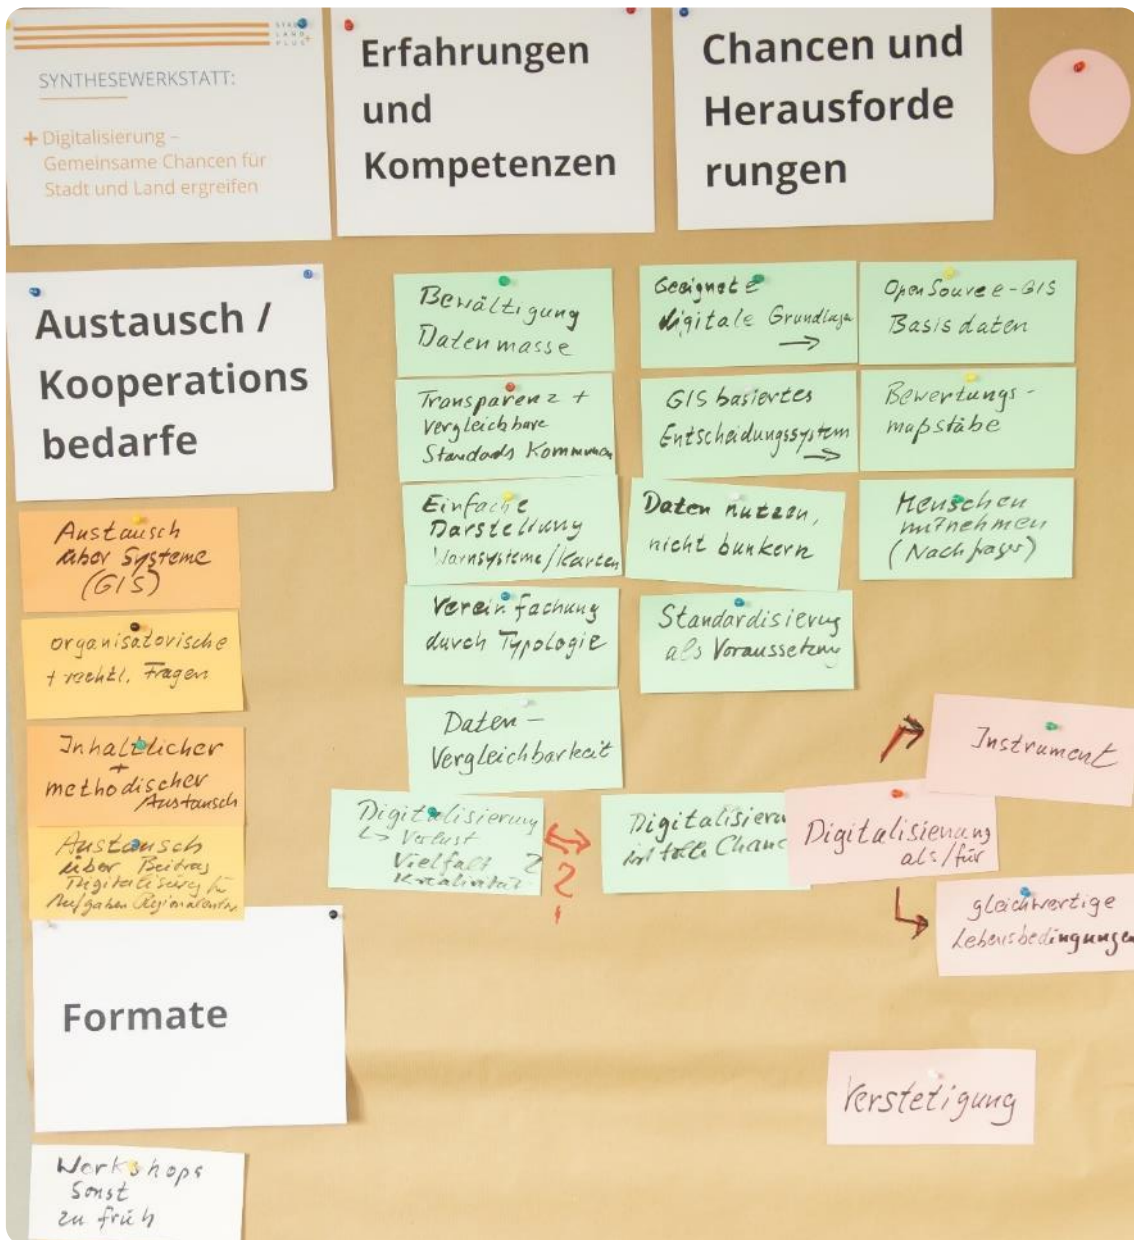 STADT
LAND
PLUS+
SYNTHESEWERKSTATT:
+ Digitalisierung –
Gemeinsame Chancen für
Stadt und Land ergreifen
Erfahrungen
und
Kompetenzen
Chancen und
Herausforde
rungen
Austausch /
Kooperations
bedarfe
Austausch
über Systeme
(GIS)
organisatorische
+ rechtl. Fragen
Inhaltlicher
+
methodischer
Austausch
Austausch
über Beitrag
Digitalisierung für
Aufgaben
Formate
Workshops
Sonst
zu früh
Bewältigung
Datenmasse
Transparenz +
vergleichbare
Standads Kommunen
Einfache
Darstellung
Warnsysteme/Karten
Vereinfachung
durch Typologie
Daten –
Vergleichbarkeit
Digitalisierung
↳ Verlust
Vielfalt
Kreativität
?
Geeignete
digitale Grundlage
→
GIS basiertes
Entscheidungssystem
→
Daten nutzen,
nicht bunkern
Standardisierug
als Voraussetzung
Digitalisierun
ist tolle Chanc
OpenSource-GIS
Basisdaten
Bewertungs-
maßstäbe
Menschen
mitnehmen
(Nachfrager)
Instrument
Digitalisierung
als/für
gleichwertige
Lebensbedingungen
Verstetigung